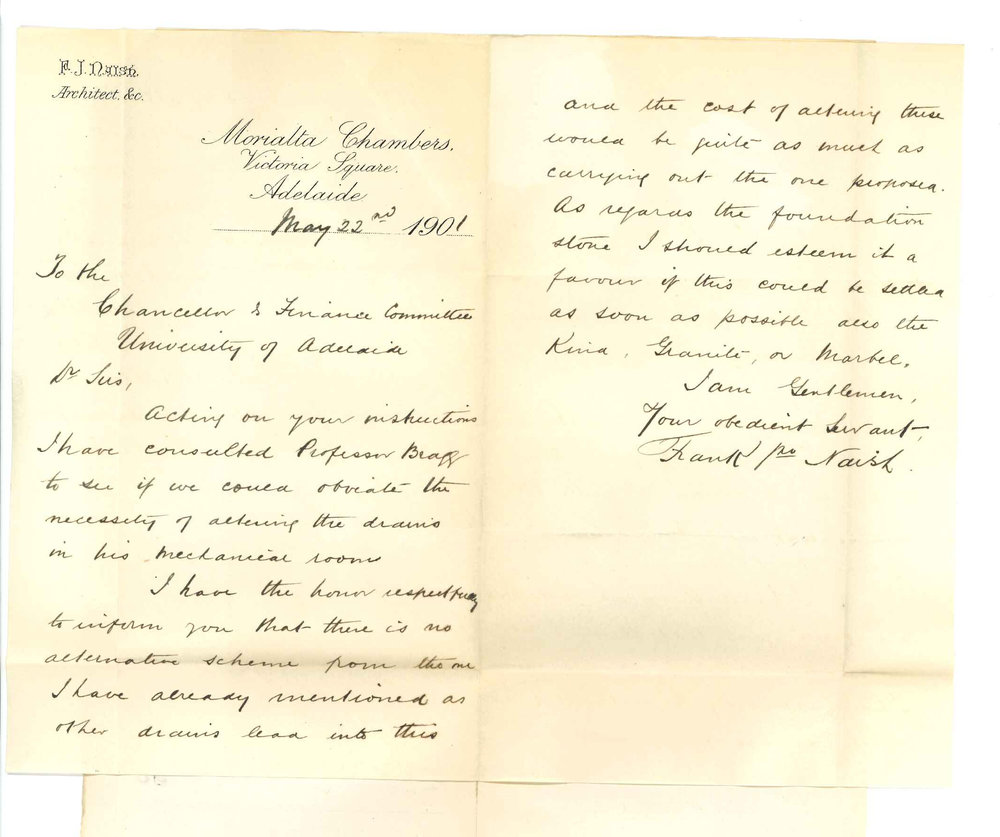 F. J. Naish.
Architect, &c.
Morialta Chambers,
Victoria Square.
Adelaide
May 22nd 1901
To the
Chancellor & Finance Committee
University of Adelaide
Dr Sirs,
Acting on your instructions
I have consulted Professor Bragg
to see if we could obviate the
necessity of altering the drains
in his mechanical room
I have the honor respectfully
to inform you that there is no
alternative scheme from the one
I have already mentioned as
other drains lead into this
and the cost of altering these
would be quite as much as
carrying out the one proposed.
As regards the foundation
stone I should esteem it a
favour if this could be settled
as soon as possible also the
Kind, Granite, or Marbel.
I am Gentlemen,
Your obedient Servant,
Frank Jno Naish.